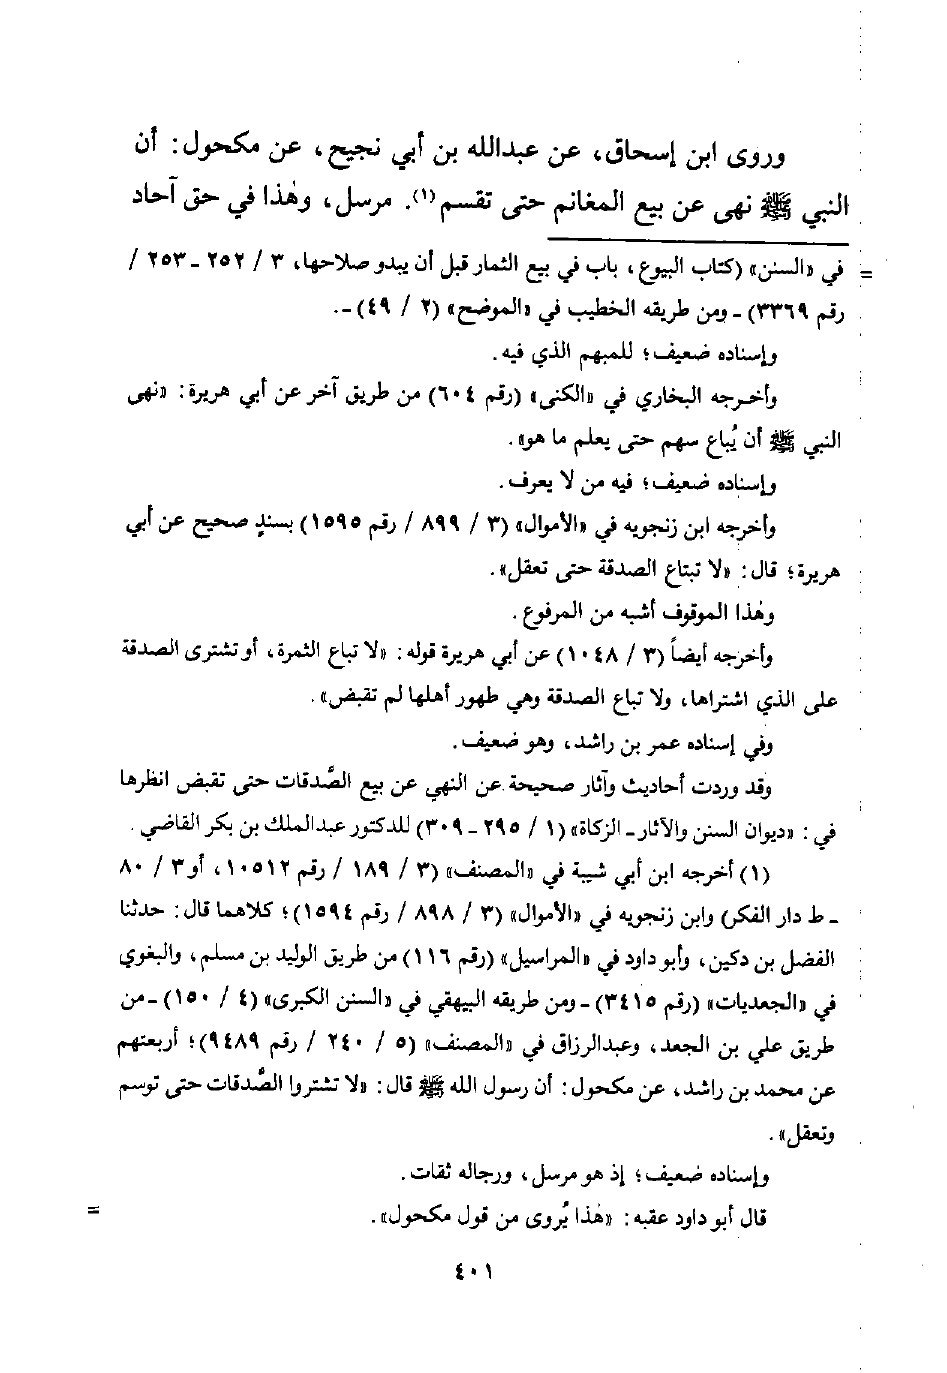 وروى ابن إسحاق، عن عبدالله بن أبي نجيح، عن مكحول: أن
النبي ﷺ نهى عن بيع المغانم حتى تقسم(١). مرسل، وهٰذا في حق آحاد
= في «السنن» (كتاب البيوع، باب في بيع الثمار قبل أن يبدو صلاحها، ٣ / ٢٥٢ - ٢٥٣ /
رقم ٣٣٦٩) - ومن طريقه الخطيب في «الموضح» (٢ / ٤٩) -.
وإسناده ضعيف؛ للمبهم الذي فيه.
وأخرجه البخاري في «الكنى» (رقم ٦٠٤) من طريق آخر عن أبي هريرة: «نهى
النبي ﷺ أن يُباع سهم حتى يعلم ما هو».
وإسناده ضعيف؛ فيه من لا يعرف.
وأخرجه ابن زنجويه في «الأموال» (٣ / ٨٩٩ / رقم ١٥٩٥) بسندٍ صحيح عن أبي
هريرة؛ قال: «لا تبتاع الصدقة حتى تعقل».
وهٰذا الموقوف أشبه من المرفوع.
وأخرجه أيضاً (٣ / ١٠٤٨) عن أبي هريرة قوله: «لا تباع الثمرة، أو تشترى الصدقة
على الذي اشتراها، ولا تباع الصدقة وهي طهور أهلها لم تقبض».
وفي إسناده عمر بن راشد، وهو ضعيف.
وقد وردت أحاديث وآثار صحيحة عن النهي عن بيع الصَّدقات حتى تقبض انظرها
في: «ديوان السنن والآثار - الزكاة» (١ / ٢٩٥ - ٣٠٩) للدكتور عبدالملك بن بكر القاضي.
(١) أخرجه ابن أبي شيبة في «المصنف» (٣ / ١٨٩ / رقم ١٠٥١٢، أو ٣ / ٨٠
- ط دار الفكر) وابن زنجويه في «الأموال» (٣ / ٨٩٨ / رقم ١٥٩٤)؛ كلاهما قال: حدثنا
الفضل بن دكين، وأبو داود في «المراسيل» (رقم ١١٦) من طريق الوليد بن مسلم، والبغوي
في «الجعديات» (رقم ٣٤١٥) - ومن طريقه البيهقي في «السنن الكبرى» (٤ / ١٥٠) - من
طريق علي بن الجعد، وعبدالرزاق في «المصنف» (٥ / ٢٤٠ / رقم ٩٤٨٩)؛ أربعتهم
عن محمد بن راشد، عن مكحول: أن رسول الله ﷺ قال: «لا تشتروا الصَّدقات حتى توسم
وتعقل».
وإسناده ضعيف؛ إذ هو مرسل، ورجاله ثقات.
قال أبو داود عقبه: «هٰذا يُروى من قول مكحول». =
٤٠١